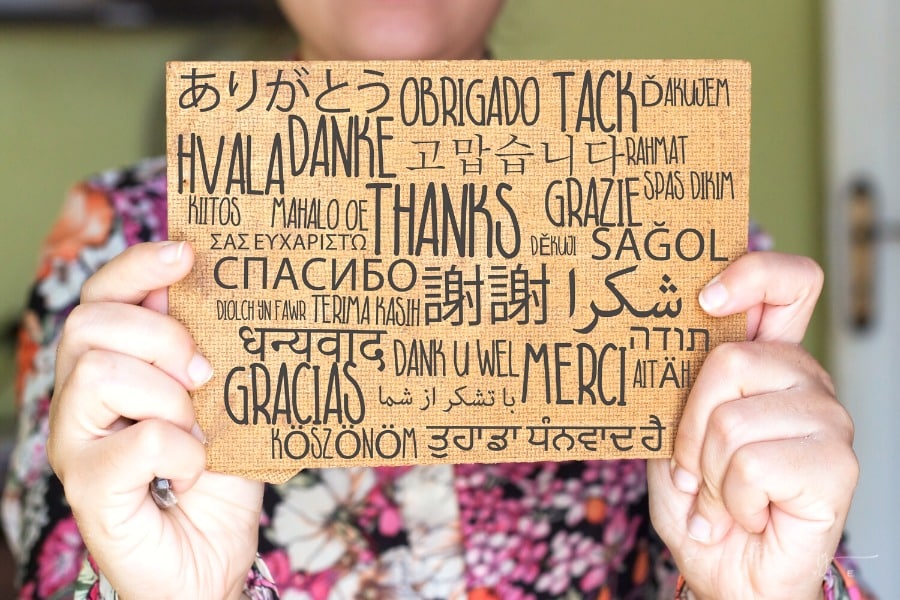 ありがとう OBRIGADO TACK ĎAKUJEM
HVALA DANKE 고맙습니다 RAHMAT
KIITOS MAHALO OE THANKS GRAZIE SPAS DIKIM
ΣΑΣ ΕΥΧΑΡΙΣΤΏ DĚKUJI SAĞOL
СПАСИБО 謝謝 شكرا
DIOLCH YN FAWR TERIMA KASIH
धन्यवाद DANK U WEL MERCI תודה
GRACIAS با تشکر از شما AITÄH
KÖSZÖNÖM ਤੁਹਾਡਾ ਧੰਨਵਾਦ ਹੈ